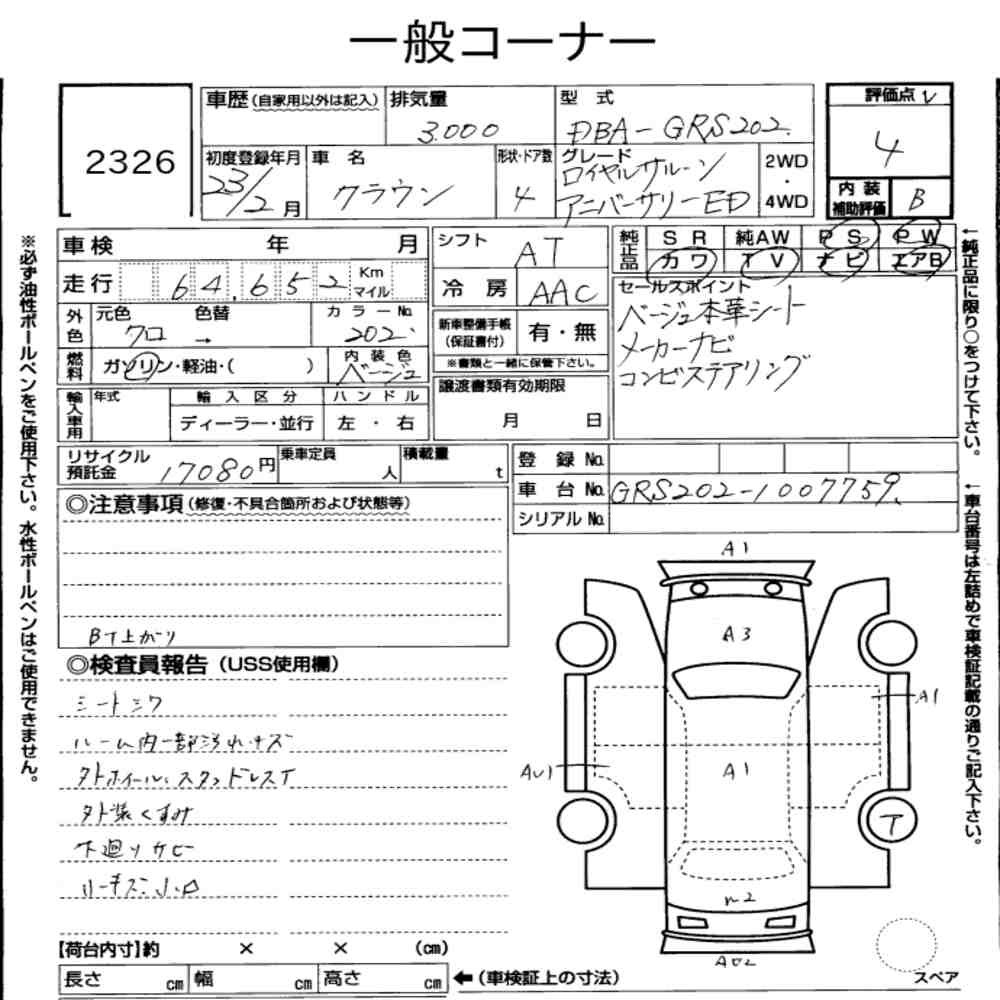 一般コーナー
2326
車歴(自家用以外は記入)
排気量
3.000
型 式
DBA-GRS202
評価点
4
初度登録年月
23/2月
車 名
クラウン
形状・ドア数
4
グレード
ロイヤルサルーン
アニバーサリーED
2WD
・
4WD
内 装
補助評価
B
車 検 年 月
シフト
AT
純正品
S R 純AW P S P W
カワ T V ナビ エアB
走行 64,652 Km
マイル
冷 房
AAC
セールスポイント
ベージュ本革シート
メーカーナビ
コンビステアリング
外色
元色 色替
クロ →
カラーNo.
202
新車整備手帳
(保証書付)
有・無
※書類と一緒に保管下さい。
燃料
ガソリン・軽油・( )
内 装 色
ベージュ
譲渡書類有効期限
月 日
輸入車用
年式
輸 入 区 分
ディーラー・並行
ハ ン ド ル
左 ・ 右
リサイクル
預託金
17080円
乗車定員
人
積載量
t
登 録 No.
車 台 No. GRS202-1007759
シリアル No.
◎注意事項(修復・不具合箇所および状態等)
BT上がり
◎検査員報告(USS使用欄)
シートシワ
ルーム内一部汚れキズ
外ホイール、スタッドレスT
外装くすみ
下廻りサビ
A1
A3
A1
A1
AU1
T
A02
スペア
【荷台内寸】約 × × (cm)
長さ cm 幅 cm 高さ cm
←(車検証上の寸法)
※必ず油性ボールペンをご使用下さい。水性ボールペンはご使用できません。
←純正品に限り○をつけて下さい。
←車台番号は左詰めで車検証記載の通りご記入下さい。